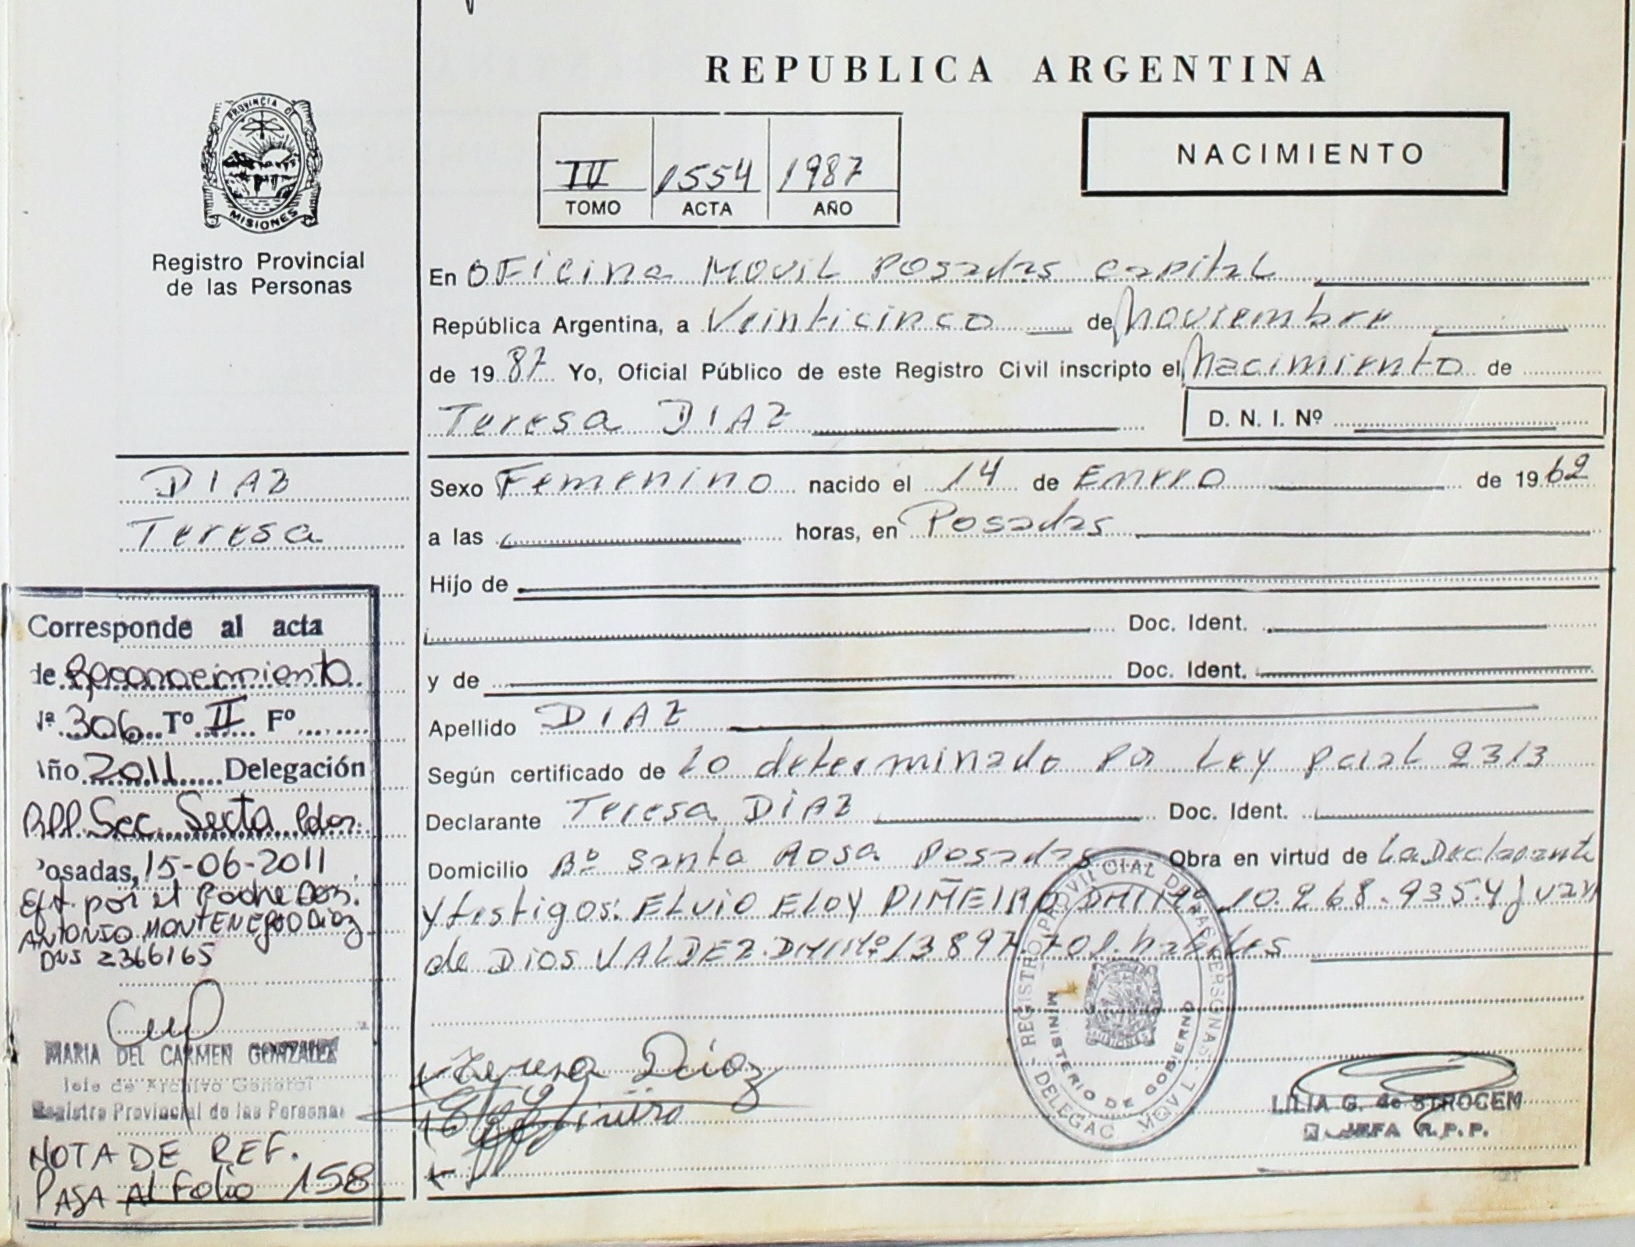 REPUBLICA ARGENTINA
PROVINCIA DE
MISIONES
Registro Provincial
de las Personas
IV 1554 1987
TOMO ACTA AÑO
NACIMIENTO
En OFicina Movil Posadas capital
República Argentina, a Veinticinco de Noviembre
de 1987 Yo, Oficial Público de este Registro Civil inscripto el Nacimiento de
Teresa DIAZ
D. N. I. Nº
DIAZ
Teresa
Sexo Femenino nacido el 14 de Enero de 1962
a las horas, en Posadas
Hijo de
Doc. Ident.
y de Doc. Ident.
Apellido DIAZ
Según certificado de lo determinado por Ley pcial 2313
Declarante Teresa DIAZ Doc. Ident.
Domicilio Bº Santa Rosa Posadas Obra en virtud de La Declarante
y testigos: ELVIO ELOY PIÑEIRO DMI Nº 10.268.935.y Juan
de Dios VALDEZ.DMI Nº 13897.701. habiles
REGISTRO PROVINCIAL DE LAS PERSONAS
MINISTERIO DE GOBIERNO
DELEGAC. MOVIL
Teresa Diaz
Piñeiro
LILIA G. de STROCEN
JEFA R.P.P.
Corresponde al acta
de Reconocimiento
Nº 306 Tº II Fº
Año 2011 Delegación
RPP Sec. Sexta Pdas.
Posadas, 15-06-2011
Eft por el Padre Don.
ANTONIO MONTENEGRO Diaz
DNI 2366165
MARIA DEL CARMEN GONZALEZ
Jefe de Archivo General
Registro Provincial de las Personas
NOTA DE REF.
PASA Al Folio 158